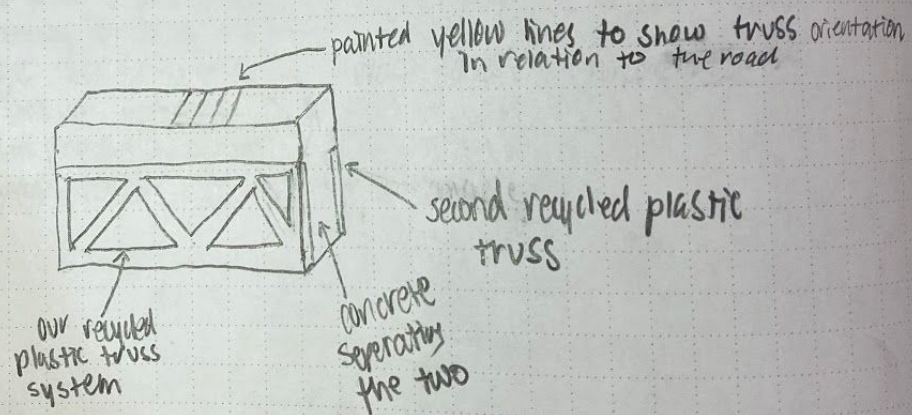 painted yellow lines to show truss orientation
in relation to the road
second recycled plastic
truss
our recycled
plastic truss
system
concrete
seperating
the two